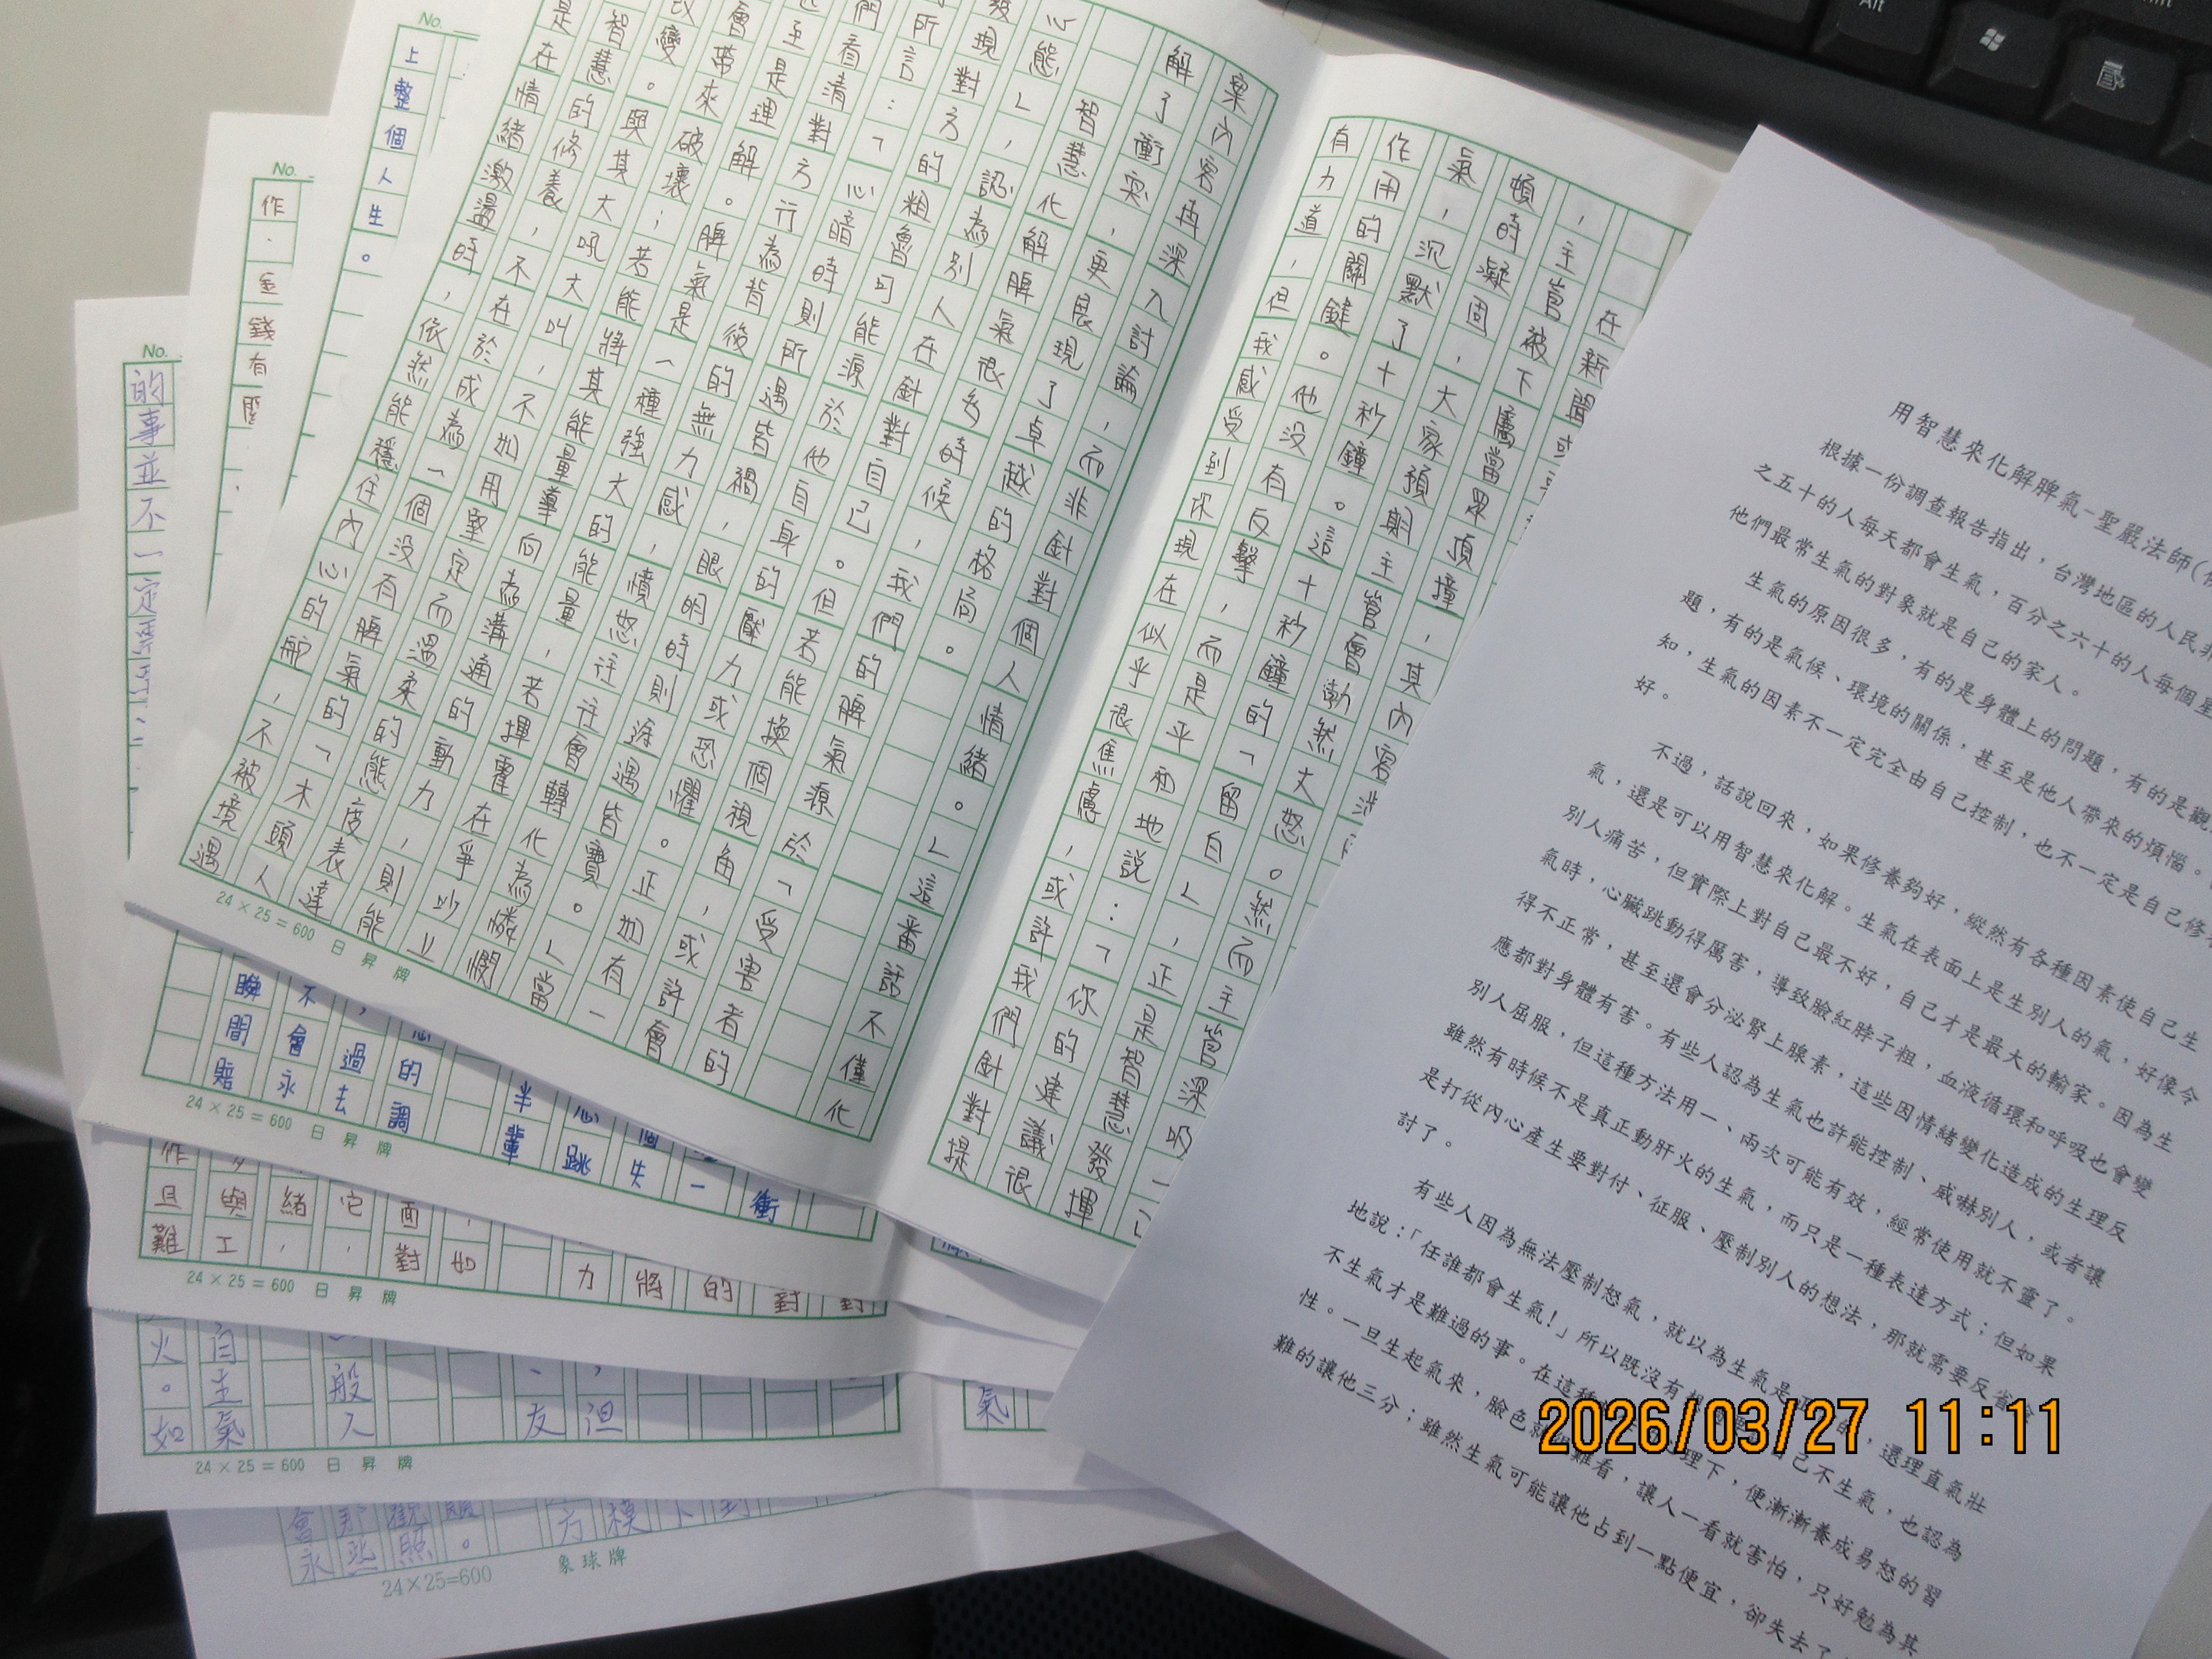 在新聞或
，主管被下屬當眾頂撞，其內容涉
頓時凝固，大家預期主管會勃然大怒。然而主管深吸一口
氣，沉默了十秒鐘。這十秒鐘的「留白」，正是智慧發揮
作用的關鍵。他沒有反擊，而是平和地說：「你的建議很
有力道，但我感受到你現在似乎很焦慮，或許我們針對提
案內容再深入討論，而非針對個人情緒。」這番話不僅化
解了衝突，更展現了卓越的格局。
智慧化解脾氣很多時候，我們的脾氣源於「受害者的
心態」，認為別人在針對自己。但若能換個視角，或許會
發現對方的粗魯可能源於他自身的壓力或恐懼。正如有一
所言：「心暗時則所遇皆禍，眼明時則途遇皆寶。」當
們看清對方行為背後的無力感，憤怒往往會轉化為憐憫
至是理解。脾氣是一種強大的能量，若揮霍在爭吵上
會帶來破壞；若能將其能量導向為溝通的動力，則能
改變。與其大吼大叫，不如用堅定而溫柔的態度表達
智慧的修養，不在於成為一個沒有脾氣的「木頭人
是在情緒激盪時，依然能穩住內心的舵，不被境遇
24×25=600 日昇牌
No.
上整個人生。
衝
一
個失
心跳
半輩
的調
，過去
不會永
瞬間賠
24×25=600 日昇牌
No.
作
金錢有
對
對
的
將
力
如
面對
它，
緒，
與工
作且難
24×25=600 日昇牌
No.
的事並不一定
氣
，但
、友
般人
自主氣
火。如
24×25=600 日昇牌
到
下
模
方
觀照。
那些
會永
24×25=600 象球牌
用智慧來化解脾氣-聖嚴法師(
根據一份調查報告指出，台灣地區的人民非
之五十的人每天都會生氣，百分之六十的人每個星
他們最常生氣的對象就是自己的家人。
生氣的原因很多，有的是身體上的問題，有的是觀
題，有的是氣候、環境的關係，甚至是他人帶來的煩惱。
知，生氣的因素不一定完全由自己控制，也不一定是自己修養
好。
不過，話說回來，如果修養夠好，縱然有各種因素使自己生
氣，還是可以用智慧來化解。生氣在表面上是生別人的氣，好像令
別人痛苦，但實際上對自己最不好，自己才是最大的輸家。因為生
氣時，心臟跳動得厲害，導致臉紅脖子粗，血液循環和呼吸也會變
得不正常，甚至還會分泌腎上腺素，這些因情緒變化造成的生理反
應都對身體有害。有些人認為生氣也許能控制、威嚇別人，或者讓
別人屈服，但這種方法用一、兩次可能有效，經常使用就不靈了。
雖然有時候不是真正動肝火的生氣，而只是一種表達方式；但如果
是打從內心產生要對付、征服、壓制別人的想法，那就需要反省檢
討了。
有些人因為無法壓制怒氣，就以為生氣是正常的，還理直氣壯
地說：「任誰都會生氣！」所以既沒有想過要讓自己不生氣，也認為
不生氣才是難過的事。在這種心理下，便漸漸養成易怒的習
性。一旦生起氣來，臉色就很難看，讓人一看就害怕，只好勉為其
難的讓他三分；雖然生氣可能讓他占到一點便宜，卻失去了
Alt
2026/03/27 11:11